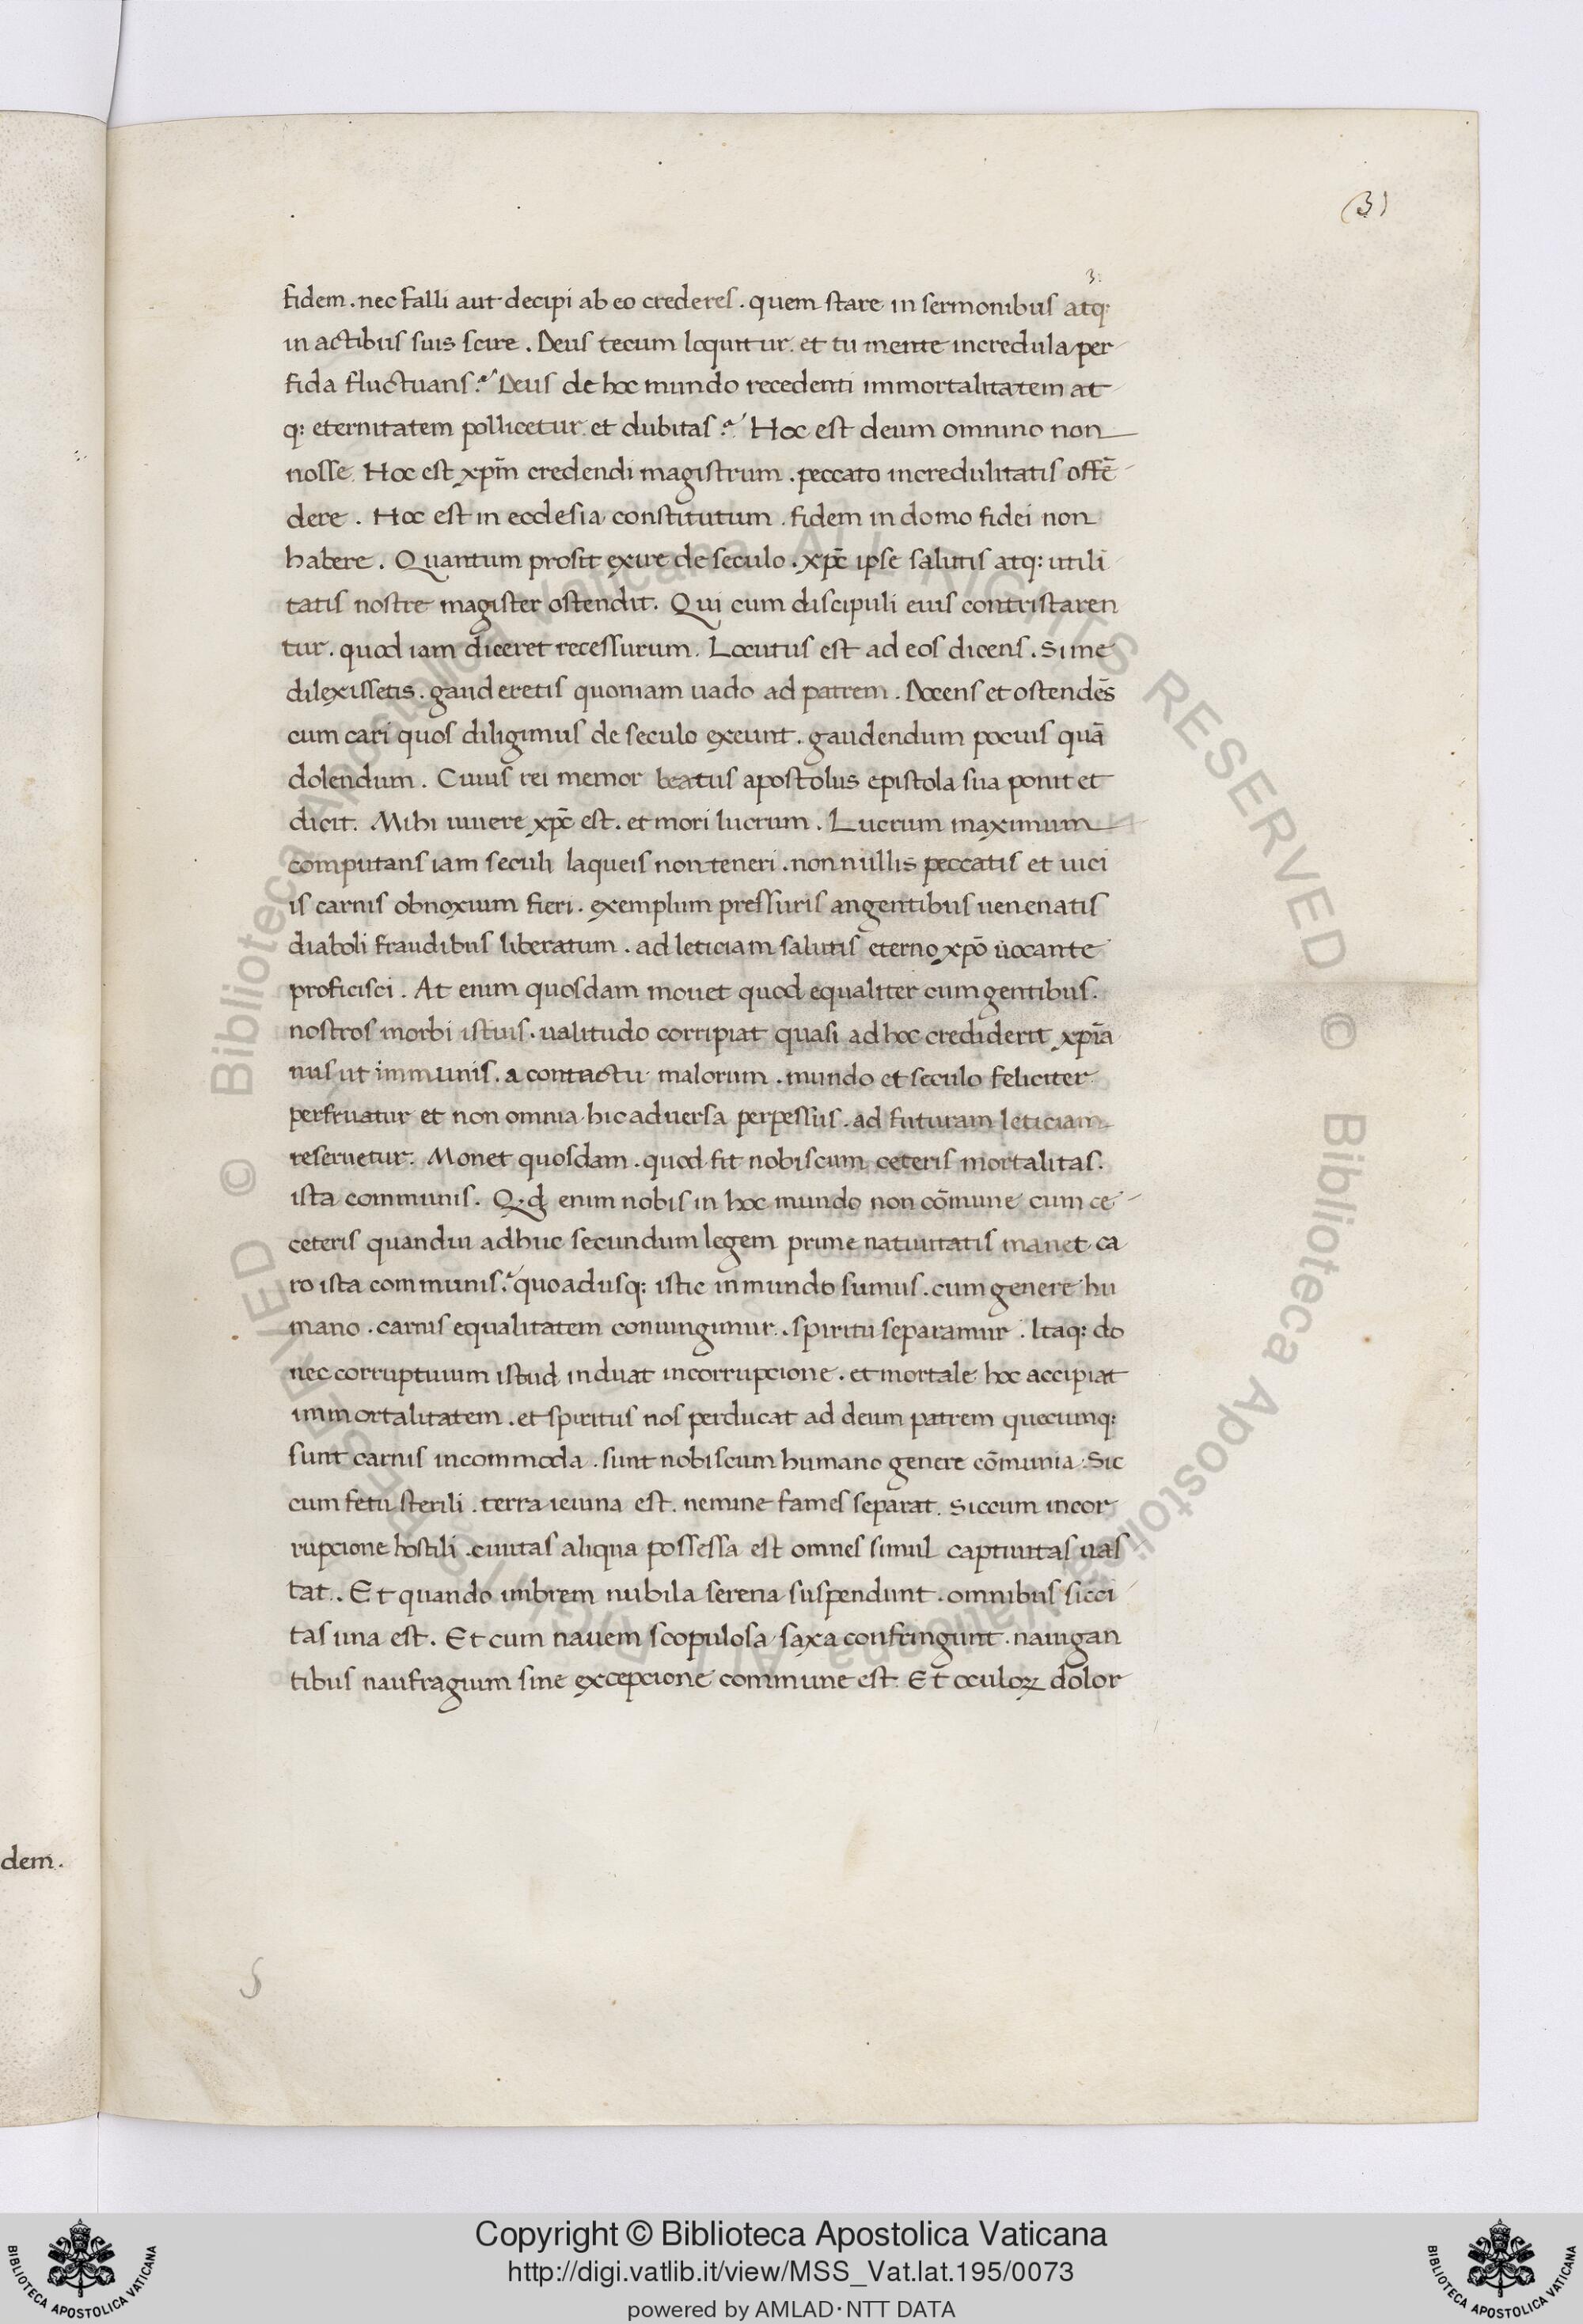 (3)
3.
fidem . nec falli aut decipi ab eo crederes . quem stare in sermonibus atq:
in actibus suis scire . Deus tecum loquitur . et tu mente incredula per
fida fluctuans ? Deus de hoc mundo recedenti immortalitatem at
q: eternitatem pollicetur . et dubitas ? Hoc est deum omnino non
nosse . Hoc est xpm̄ credendi magistrum . peccato incredulitatis offē
dere . Hoc est in ecclesia constitutum . fidem in domo fidei non
habere . Quantum prosit exire de seculo . xpc̄ ipse salutis atq: utili
tatis nostre magister ostendit . Qui cum discipuli eius contristaren
tur . quod iam diceret recessurum . Locutus est ad eos dicens . Si me
dilexissetis . gauderetis quoniam uado ad patrem . Docens et ostendēs
cum cari quos diligimus de seculo exeunt . gaudendum pocius quā
dolendum . Cuius rei memor beatus apostolus epistola sua ponit et
dicit . Mihi uiuere xpc̄ est . et mori lucrum . Lucrum maximum
computans iam seculi laqueis non teneri . non nullis peccatis et uici
is carnis obnoxium fieri . exemplum pressuris angentibus uenenatis
diaboli fraudibus liberatum . ad leticiam salutis eterno xpō uocante
proficisci . At enim quosdam mouet quod equaliter cum gentibus .
nostros morbi istius . ualitudo corripiat quasi ad hoc crediderit xpīa
nus ut immunis . a contactu malorum . mundo et seculo feliciter
perfruatur et non omnia hic aduersa perpessus . ad futuram leticiam
reseruetur . Monet quosdam . quod fit nobiscum ceteris mortalitas .
ista communis . Q.d enim nobis in hoc mundo non cōmune cum ce
ceteris quandiu adhuc secundum legem prime natiuitatis manet ca
ro ista communis ? quoadusq: istic in mundo sumus . cum genere hu
mano . carnis equalitatem coniungimur . spiritu separamur . Itaq: do
nec corruptiuum istud induat incorrupcione . et mortale hoc accipiat
immortalitatem . et spiritus nos perducat ad deum patrem quecumq:
sunt carnis incommoda . sunt nobiscum humano genere cōmunia . Sic
cum fetu sterili . terra ieiuna est . nemine fames separat . Sic cum incor
rupcione hostili . ciuitas aliqua possessa est omnes simul captiuitas uas
tat . Et quando imbrem nubila serena suspendunt . omnibus sicci
tas una est . Et cum nauem scopulosa saxa confringunt . nauigan
tibus naufragium sine excepcione commune est . Et oculoꝝ dolor
dem .
Copyright © Biblioteca Apostolica Vaticana
http://digi.vatlib.it/view/MSS_Vat.lat.195/0073
powered by AMLAD·NTT DATA
BIBLIOTECA APOSTOLICA VATICANA
BIBLIOTECA APOSTOLICA VATICANA